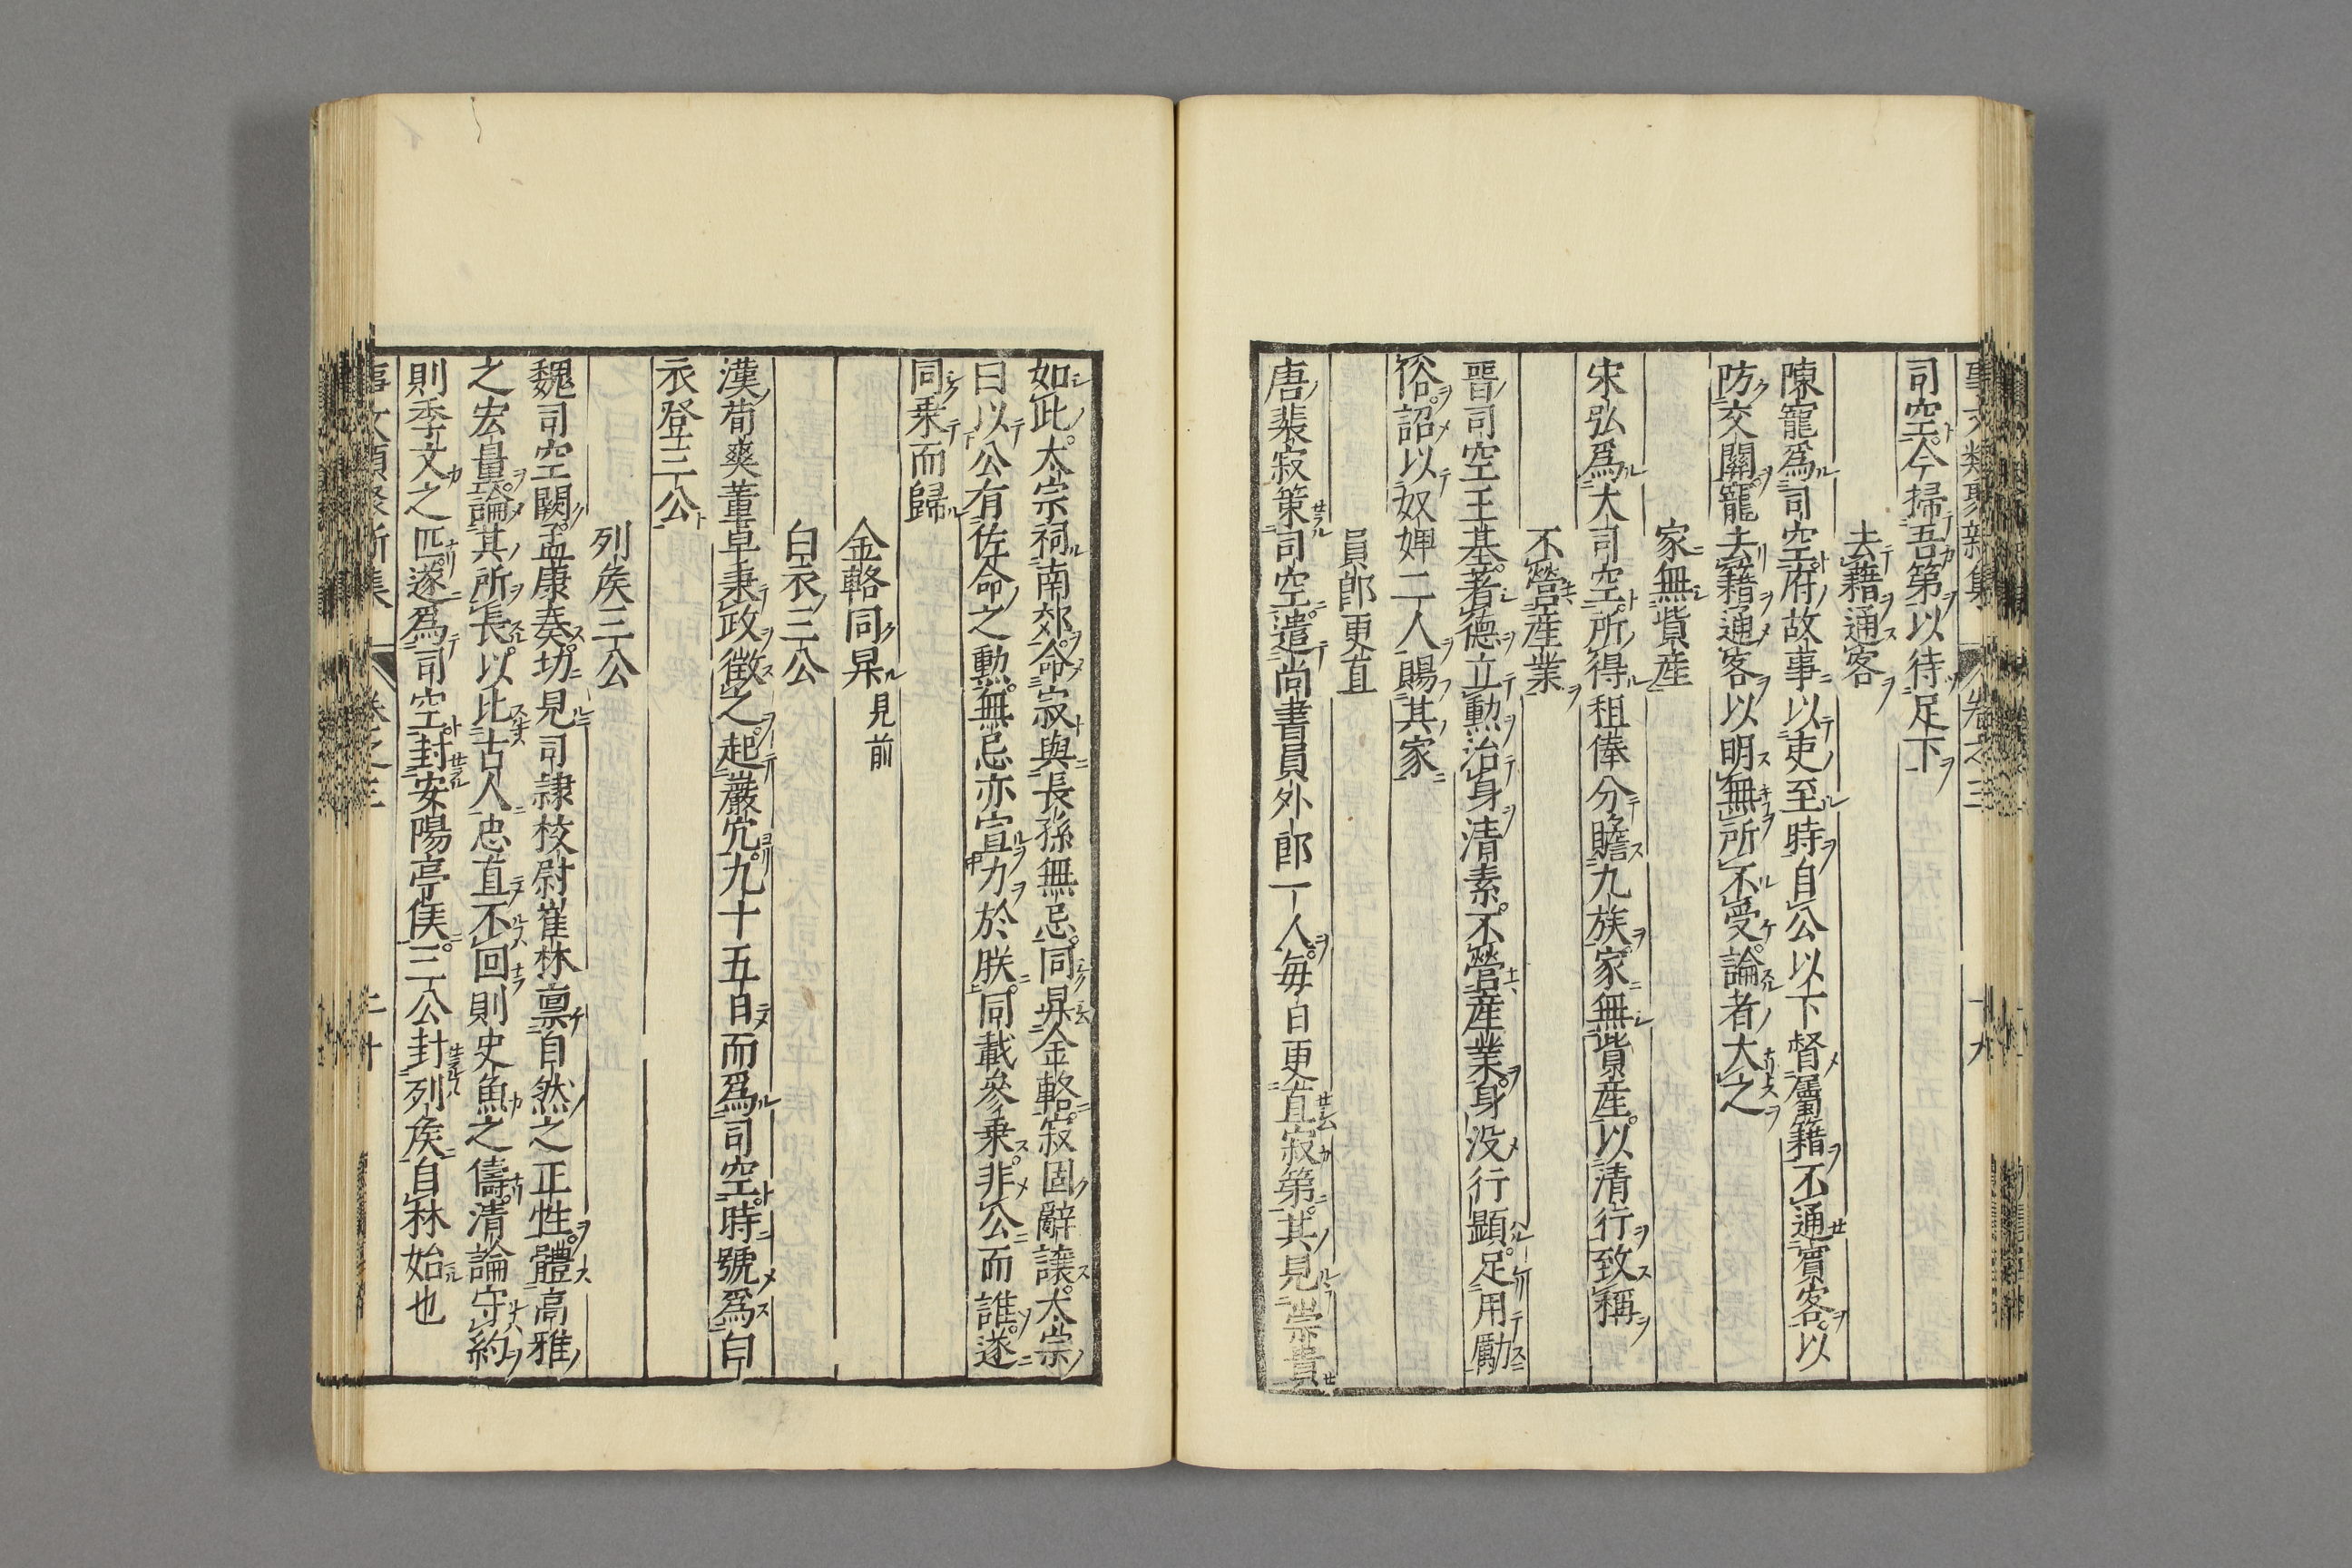 司空今掃吾第以待足下
去藉通客
陳寵爲司空府故事以吏至時自公以下督屬籍不通賓客以
防交關寵去籍通客以明無所不受論者大之
家無貲産
宋弘爲大司空所得租俸分贍九族家無貲産以清行致稱
不營産業
晋司空王基著德立勲治身清素不營産業身没行顕足用勵
俗詔以奴婢二人賜其家
員郎更直
唐裴寂策司空遣尚書員外郎一人毎日更直寂第其見崇貴
如此太宗祠南郊命寂與長孫無忌同昇金輅寂固辭讓太宗
曰以公有佐命之勲無忌亦宣力於朕同載參乗非公而誰遂
同乗而歸
金輅同昇見前
白衣三公
漢荀爽董卓秉政徴之起巖穴九十五日而爲司空時號爲白
衣登三公
列侯三公
魏司空闕孟康奏切見司隷校尉崔林禀自然之正性體高雅
之宏量論其所長以比古人忠直不回則史魚之儔清論守約
則季文之匹遂爲司空封安陽亭侯三公封列侯自林始也